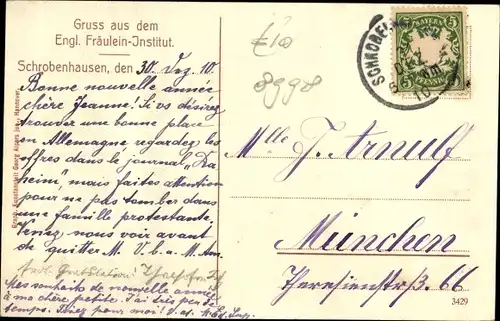 Gruss aus dem
Engl. Fräulein-Institut.
Schrobenhausen, den 30. Dez. 10.
Bonne nouvelle année
chère Jeanne! Si vs désirez
trouver une bonne place
en Allemagne regardez les
offres dans le journal „Da-
heim", mais faites attention
pour ne pas tomber dans
une famille protestante.
Venez nous voir avant
de quitter M. V. b. a. M. Am.
Mes souhaits de nouvelle année
à ma chère petite. J'ai très peu de
temps. Priez pour moi!
BAYERN
5
SCHROBENHAUSEN
DEZ
8998
Mlle J. Arnulf
München
Theresienstrß. 66
3429